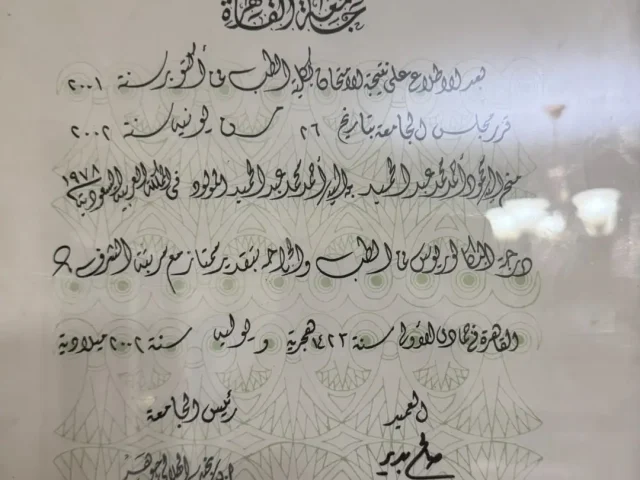 جامعة القاهرة
بعد الاطلاع على نتيجة الامتحان بكلية الطب فى أكتوبر سنة ٢٠٠١
قرر مجلس الجامعة بتاريخ ٢٦ من يونيه سنة ٢٠٠٢
منح أحمد محمد عبد الحميد السيد أحمد محمد عبد الحميد المولود فى المملكة العربية السعودية ١٩٧٨
درجة البكالوريوس فى الطب والجراحة بتقدير ممتاز مع مرتبة الشرف
القاهرة فى جمادى الأولى سنة ١٤٢٣ هجرية و يوليه سنة ٢٠٠٢ ميلادية
العميد رئيس الجامعة
صالح بدير